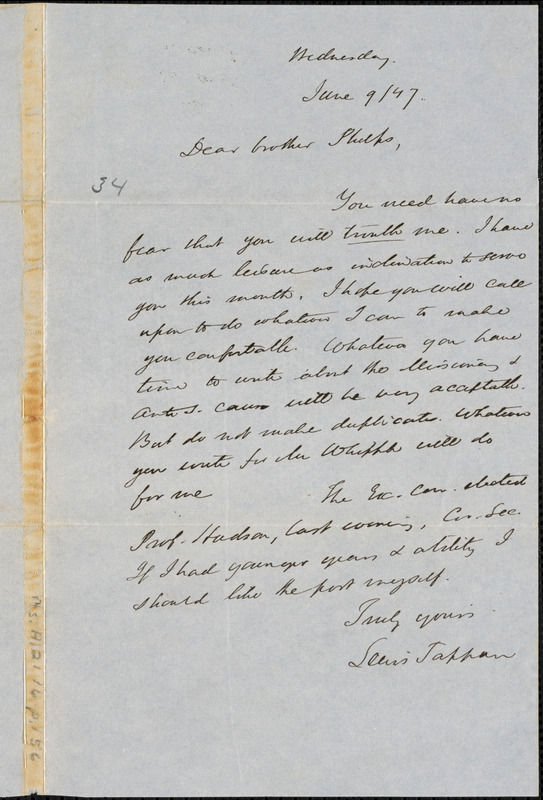 Wednesday.
June 9/47.
Dear brother Phelps,
34
You need have no
fear that you will trouble me. I have
as much leisure as inclination to serve
you this month. I hope you will call
upon to do whatever I can to make
you comfortable. Whatever you have
time to write about the Missionary &
Anti S. cause will be very acceptable.
But do not make duplicates. Whatever
you write for Mr Whipple will do
for me The Ex. Com. elected
Prof. Hudson, last evening, Cor. Sec.
If I had younger years & ability I
should like the post myself.
Truly yours
Lewis Tappan
Ms. A.21.16 p.156